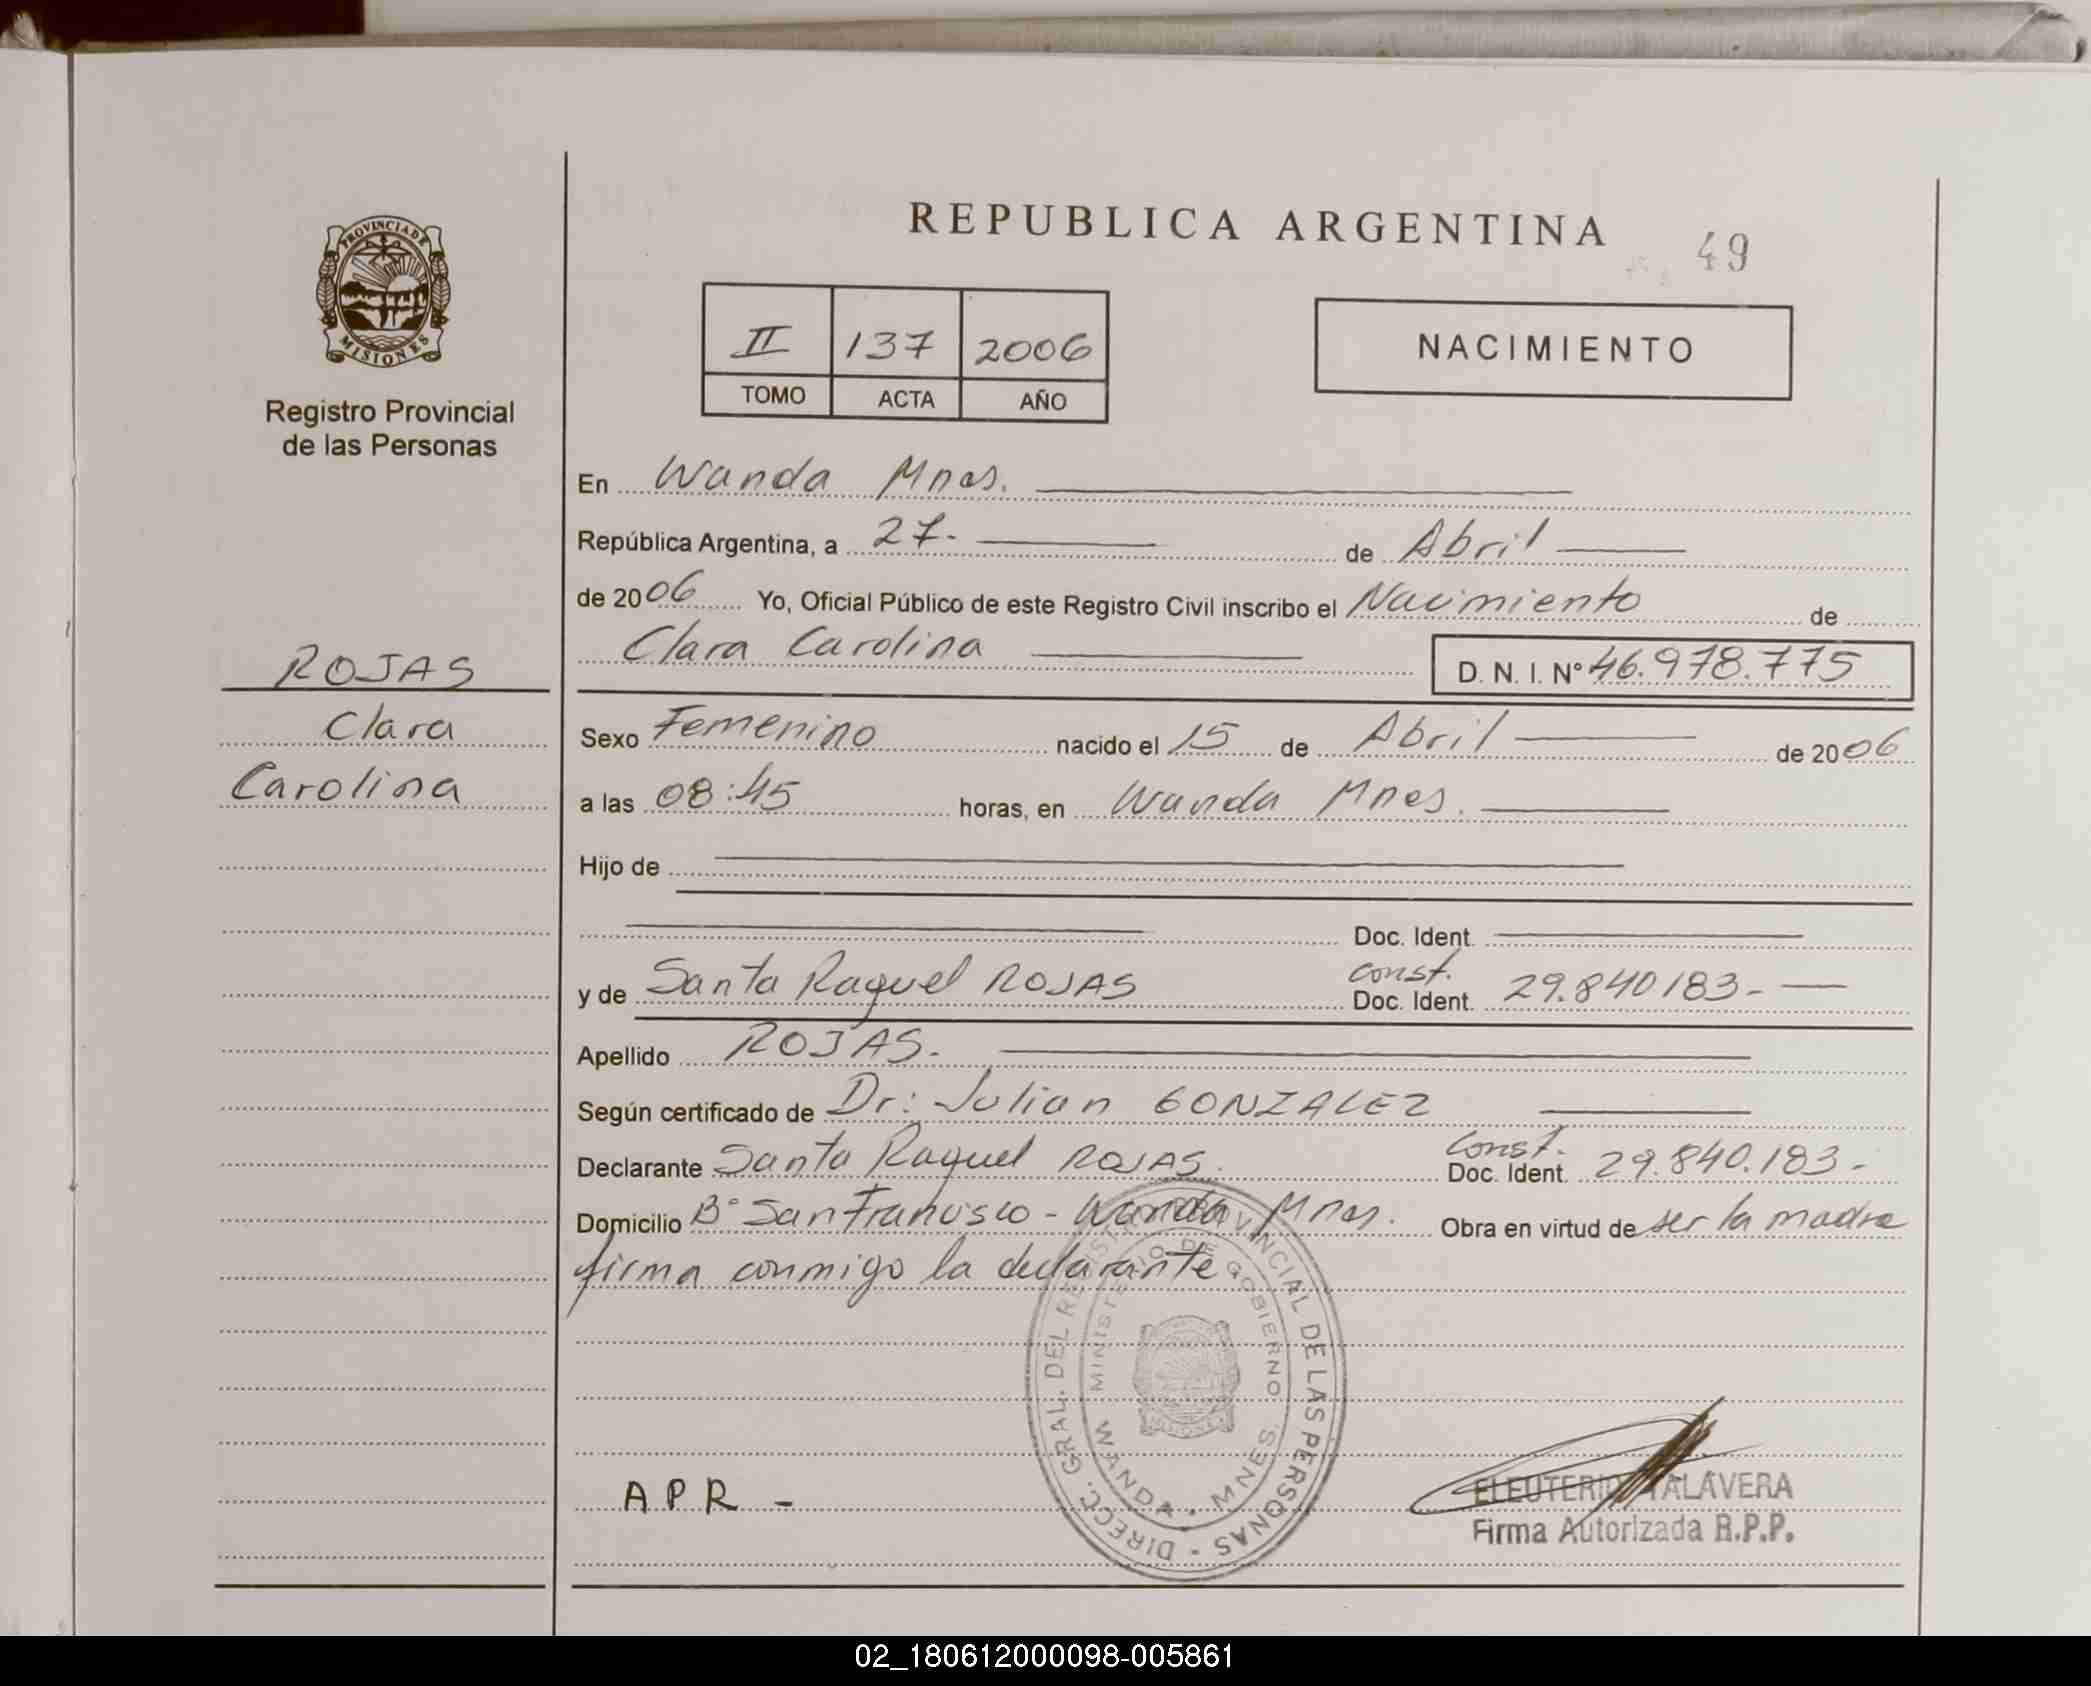 REPUBLICA ARGENTINA
49
PROVINCIA DE
MISIONES
Registro Provincial
de las Personas
II 137 2006
TOMO ACTA AÑO
NACIMIENTO
En Wanda Mnes.
República Argentina, a 27. de Abril
de 2006 Yo, Oficial Público de este Registro Civil inscribo el Nacimiento de
Clara Carolina D. N. I. Nº 46.978.775
ROJAS
Clara
Carolina
Sexo Femenino nacido el 15 de Abril de 2006
a las 08:45 horas, en Wanda Mnes.
Hijo de
Doc. Ident.
y de Santa Raquel ROJAS const. Doc. Ident. 29.840183-
Apellido ROJAS.
Según certificado de Dr: Julian GONZALEZ
Declarante Santa Raquel ROJAS. Const. Doc. Ident. 29.840.183-
Domicilio Bº San Francisco - Wanda Mnes. Obra en virtud de ser la madre
firma conmigo la declarante.
DIRECC. GRAL. DEL REGISTRO PROVINCIAL DE LAS PERSONAS -
MINISTERIO DE GOBIERNO
WANDA - MNES.
MISIONES
APR -
ELEUTERIO TALAVERA
Firma Autorizada R.P.P.
02_180612000098-005861